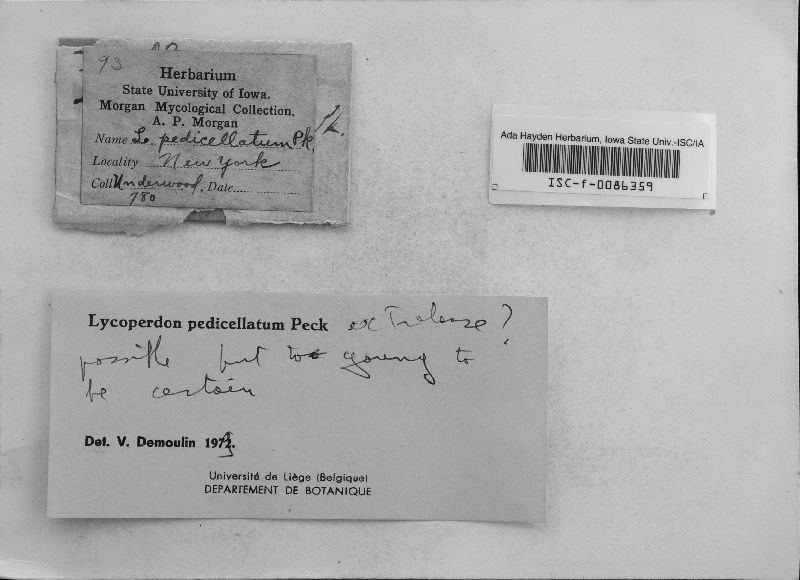 93
Herbarium
State University of Iowa.
Morgan Mycological Collection.
A. P. Morgan
Name L. pedicellatum Pk.
Locality New York
Coll Underwood, Date
780
Ada Hayden Herbarium, Iowa State Univ.-ISC/IA
ISC-f-0086359
Lycoperdon pedicellatum Peck ex Trelease ?
possible but too young to
be certain
Det. V. Demoulin 197
Université de Liège (Belgique)
DEPARTEMENT DE BOTANIQUE